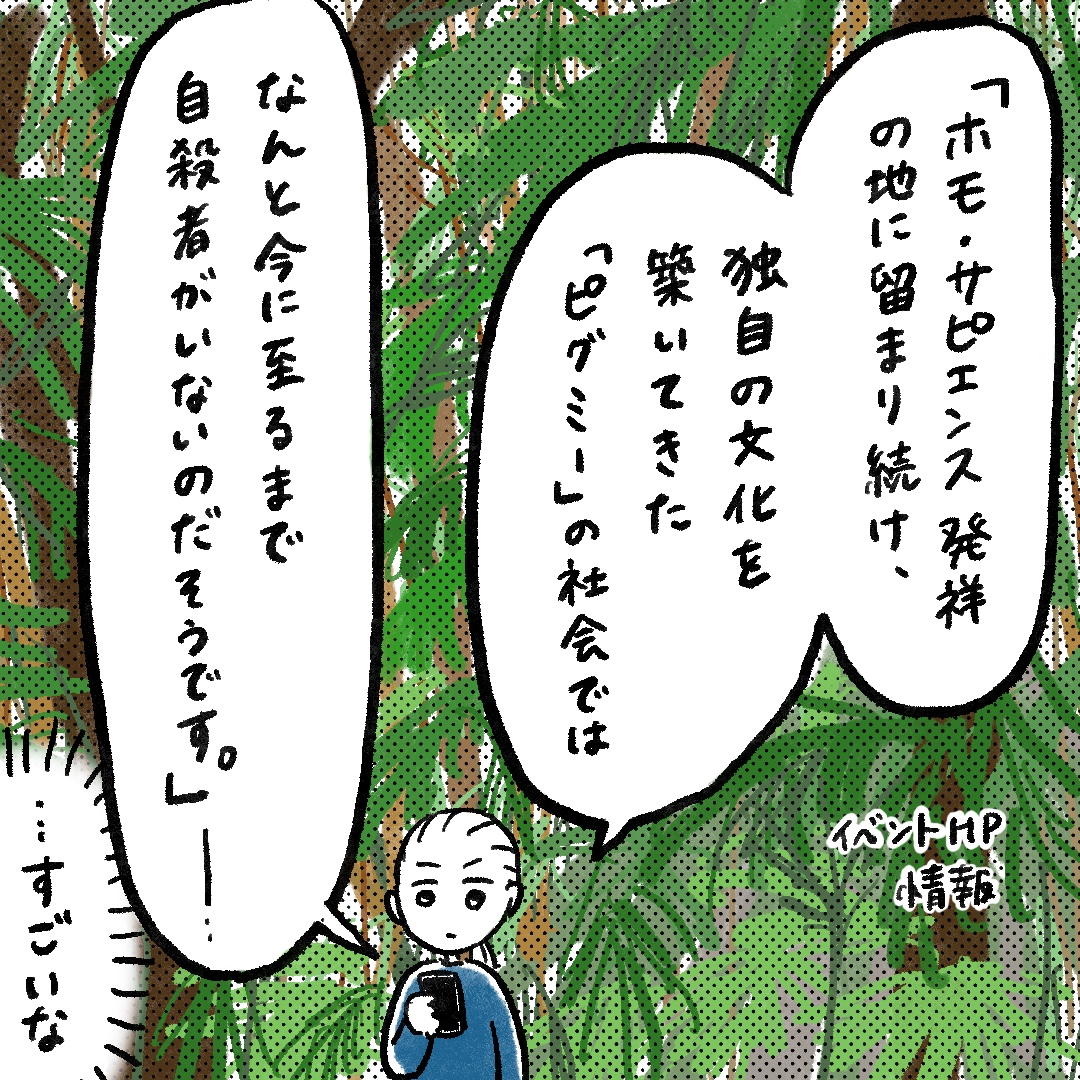 「ホモ・サピエンス発祥
の地に留まり続け、
独自の文化を
築いてきた
「ピグミー」の社会では
なんと今に至るまで
自殺者がいないのだそうです。」―…
…すごいな
イベントHP
情報